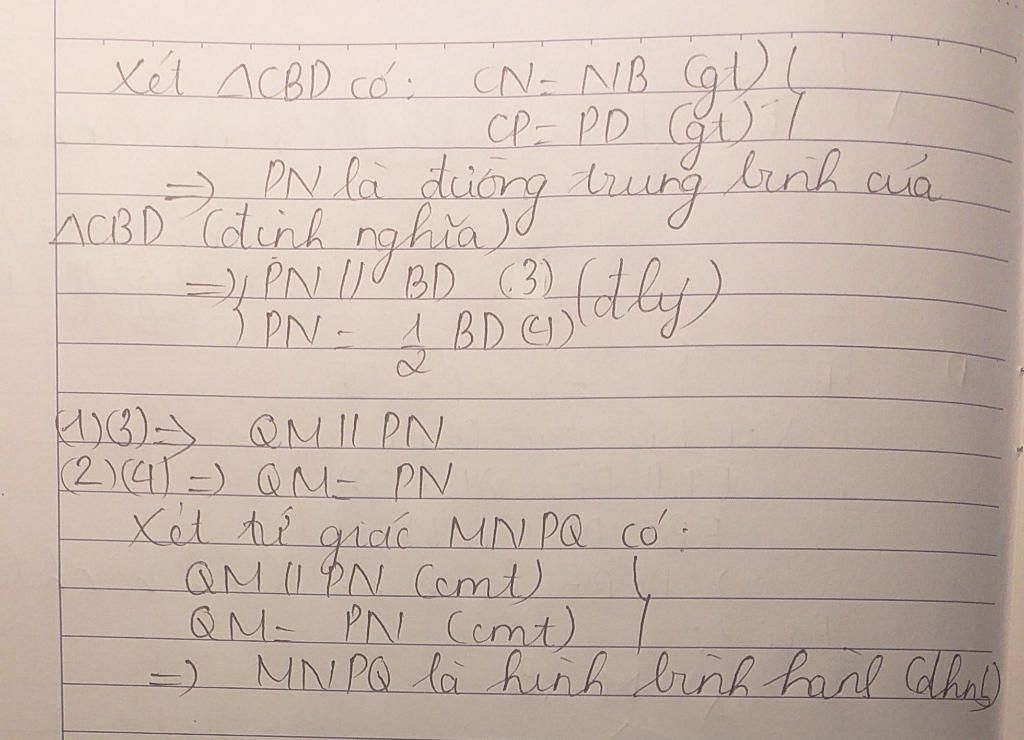 Xét △CBD có: CN = NB (gt) }
CP = PD (gt) }
=> PN là đường trung bình của
△CBD (định nghĩa)
=> { PN // BD (3) (đlý)
PN = 1/2 BD (4)
(1)(3) => QM // PN
(2)(4) => QM = PN
Xét tứ giác MNPQ có:
QM // PN (cmt) }
QM = PN (cmt) }
=> MNPQ là hình bình hành (dhnb)